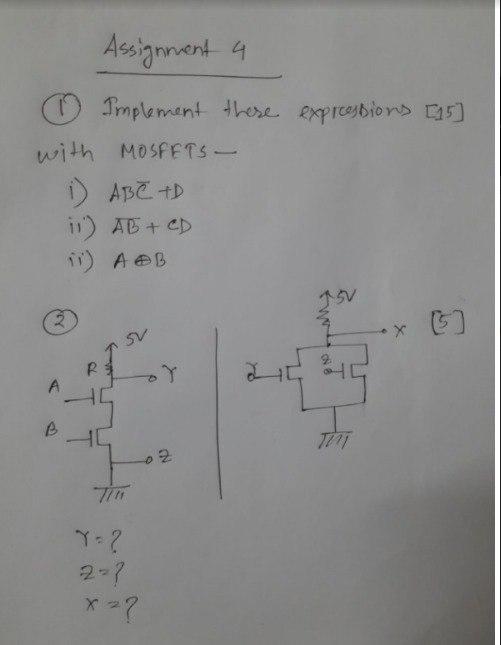 Assignment 4
① Implement these expressions [15]
with MOSFETS —
i) ABC̅ + D
ii) A̅B̅ + CD
ii) A ⊕ B
②
5V
R
Y
A
B
Z
5V
X
[5]
Y
Z
Y = ?
Z = ?
X = ?